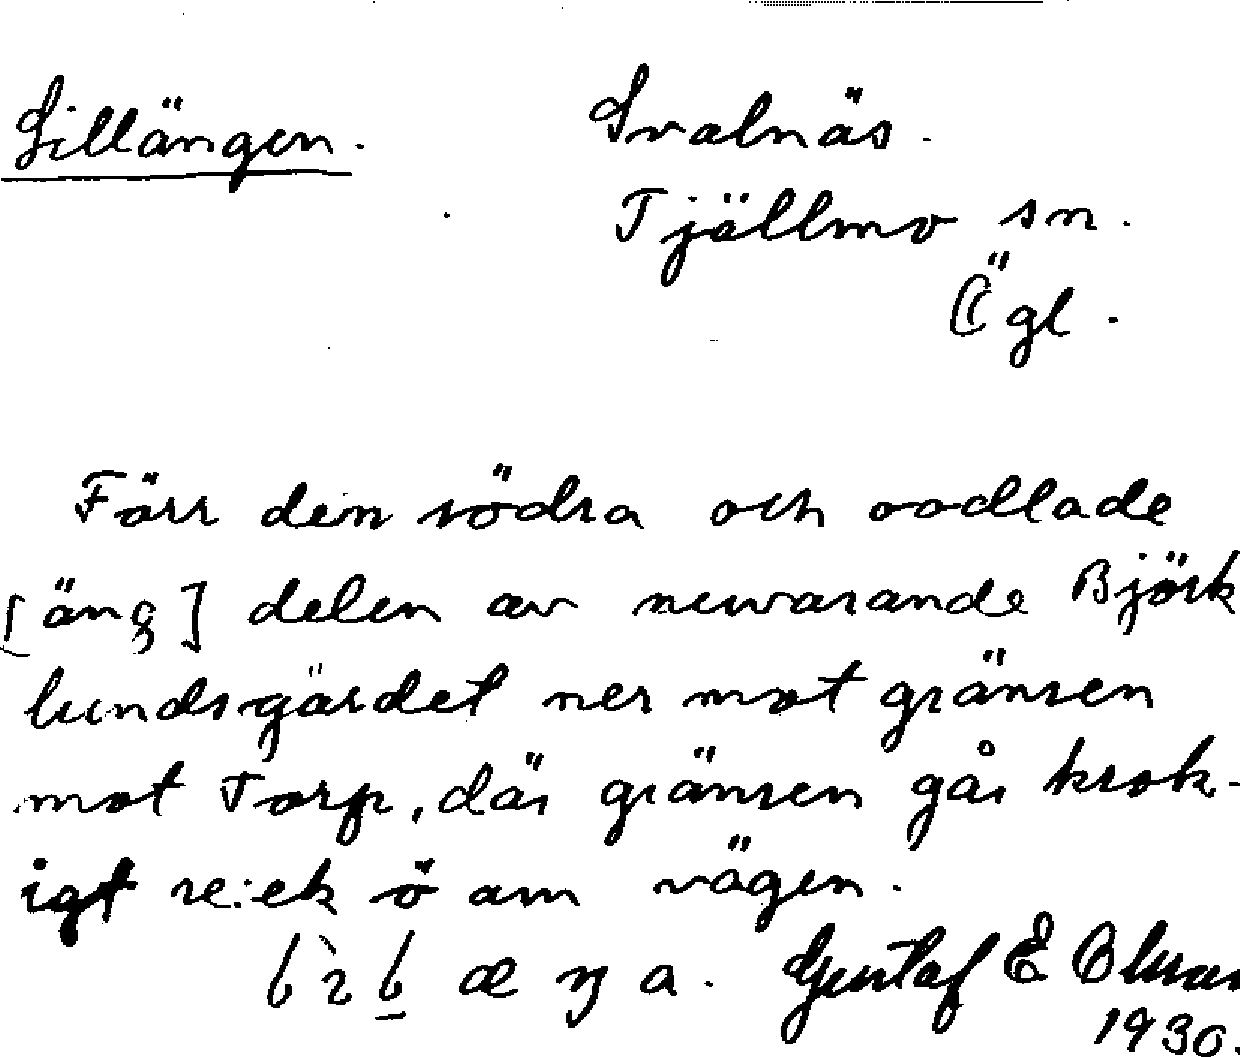 Lillängen. Svalnäs.
Tjällmo sn.
Ögl.
Förr den södra och oodlade
[äng] delen av nuvarande Björk
lundsgärdet ner mot gränsen
mot Torp, där gränsen går krok-
igt re:ek ö om vägen.
Gustaf E Olsson
1930.